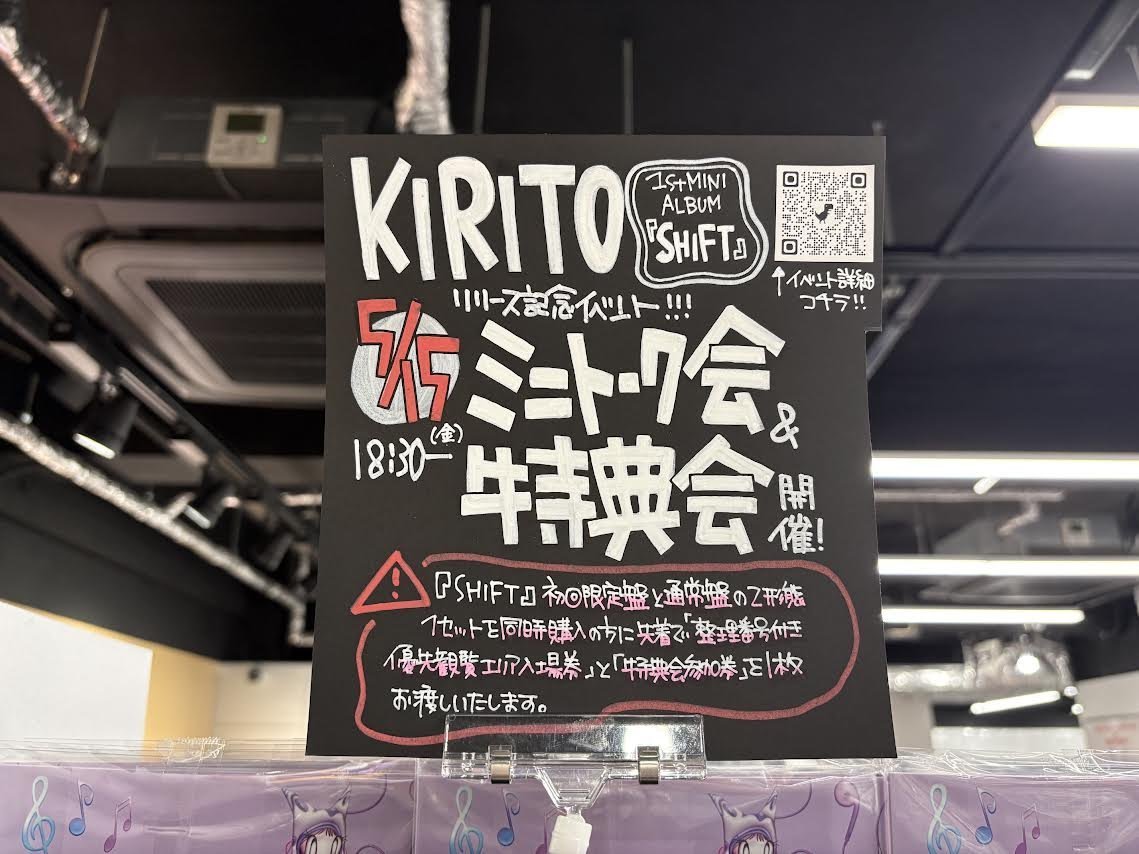 KIRITO
1st MINI
ALBUM
『SHIFT』
↑イベント詳細
コチラ!!
リリース記念イベント!!!
5/15
(金)
18:30ー
ミニトーク会
&
特典会
開催!
『SHIFT』初回限定盤と通常盤の2形態
1セットを同時購入の方に先着で「整理番号付き
優先観覧エリア入場券」と「特典会参加券」を1枚
お渡しいたします。